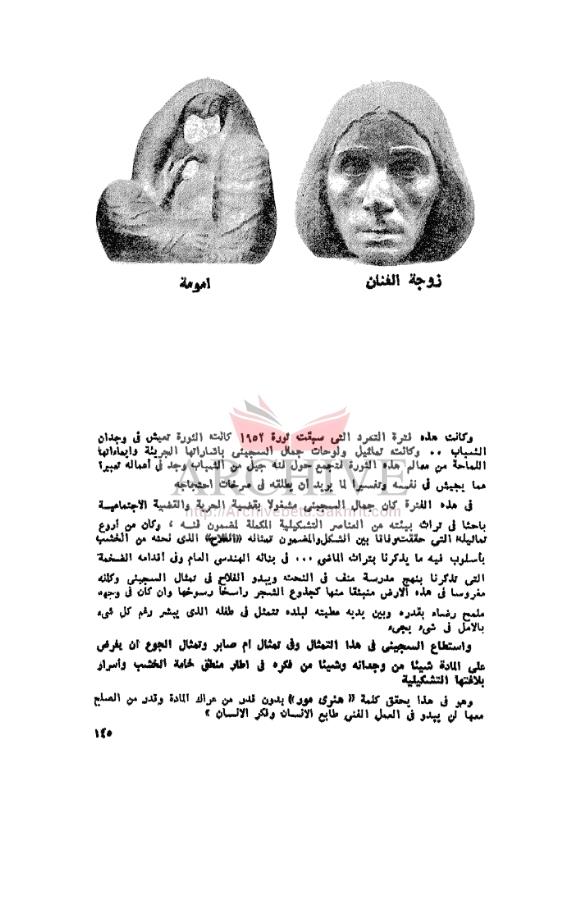 زوجة الفنان
امومة
وكانت هذه فترة التمرد التى سبقت ثورة ١٩٥٢ كانت الثورة تعيش فى وجدان
الشباب .. وكانت تماثيل ولوحات جمال السجينى باشاراتها الجريئة وايماءاتها
اللماحة من معالم هذه الثورة لتجمع حول فنه جيل من الشباب وجد فى أعماله تعبيرا
عما يجيش فى نفسه وتفسيرا لما يريد أن يطلقه فى صرخات احتجاجه
ARCHIVE
http://Archivebeta.Sakhrit.com
فى هذه الفترة كان جمال السجينى مشغولا بقضية الحرية والقضية الاجتماعية
باحثا فى تراث بيئته من العناصر التشكيلية المكملة لمضمون فنه ، وكان من أروع
تماثيله التى حققت وفاقا بين الشكل والمضمون تمثاله «الفلاح» الذى نحته من الخشب
بأسلوب فيه ما يذكرنا بتراث الماضى ... فى بنائه الهندسى العام وفى أقدامه الضخمة
التى تذكرنا بنهج مدرسة منف فى النحت ويبدو الفلاح فى تمثال السجينى وكأنه
مغروسا فى هذه الأرض منبثقا منها كجذوع الشجر راسخا رسوخها وان كان فى وجهه
ملمح رضاء بقدره وبين يديه عطيته لبلده تتمثل فى طفله الذى يبشر رغم كل شىء
بالامل فى شىء يجىء
واستطاع السجينى فى هذا التمثال وفى تمثال أم صابر وتمثال الجوع ان يفرض
على المادة شيئا من وجدانه وشيئا من فكره فى اطار منطق خامة الخشب وأسرار
بلاغتها التشكيلية
وهو فى هذا يحقق كلمة « هنرى مور » بدون قدر من عراك المادة وقدر من الصلح
معها لن يبدو فى العمل الفنى طابع الانسان وفكر الانسان »
١٤٥